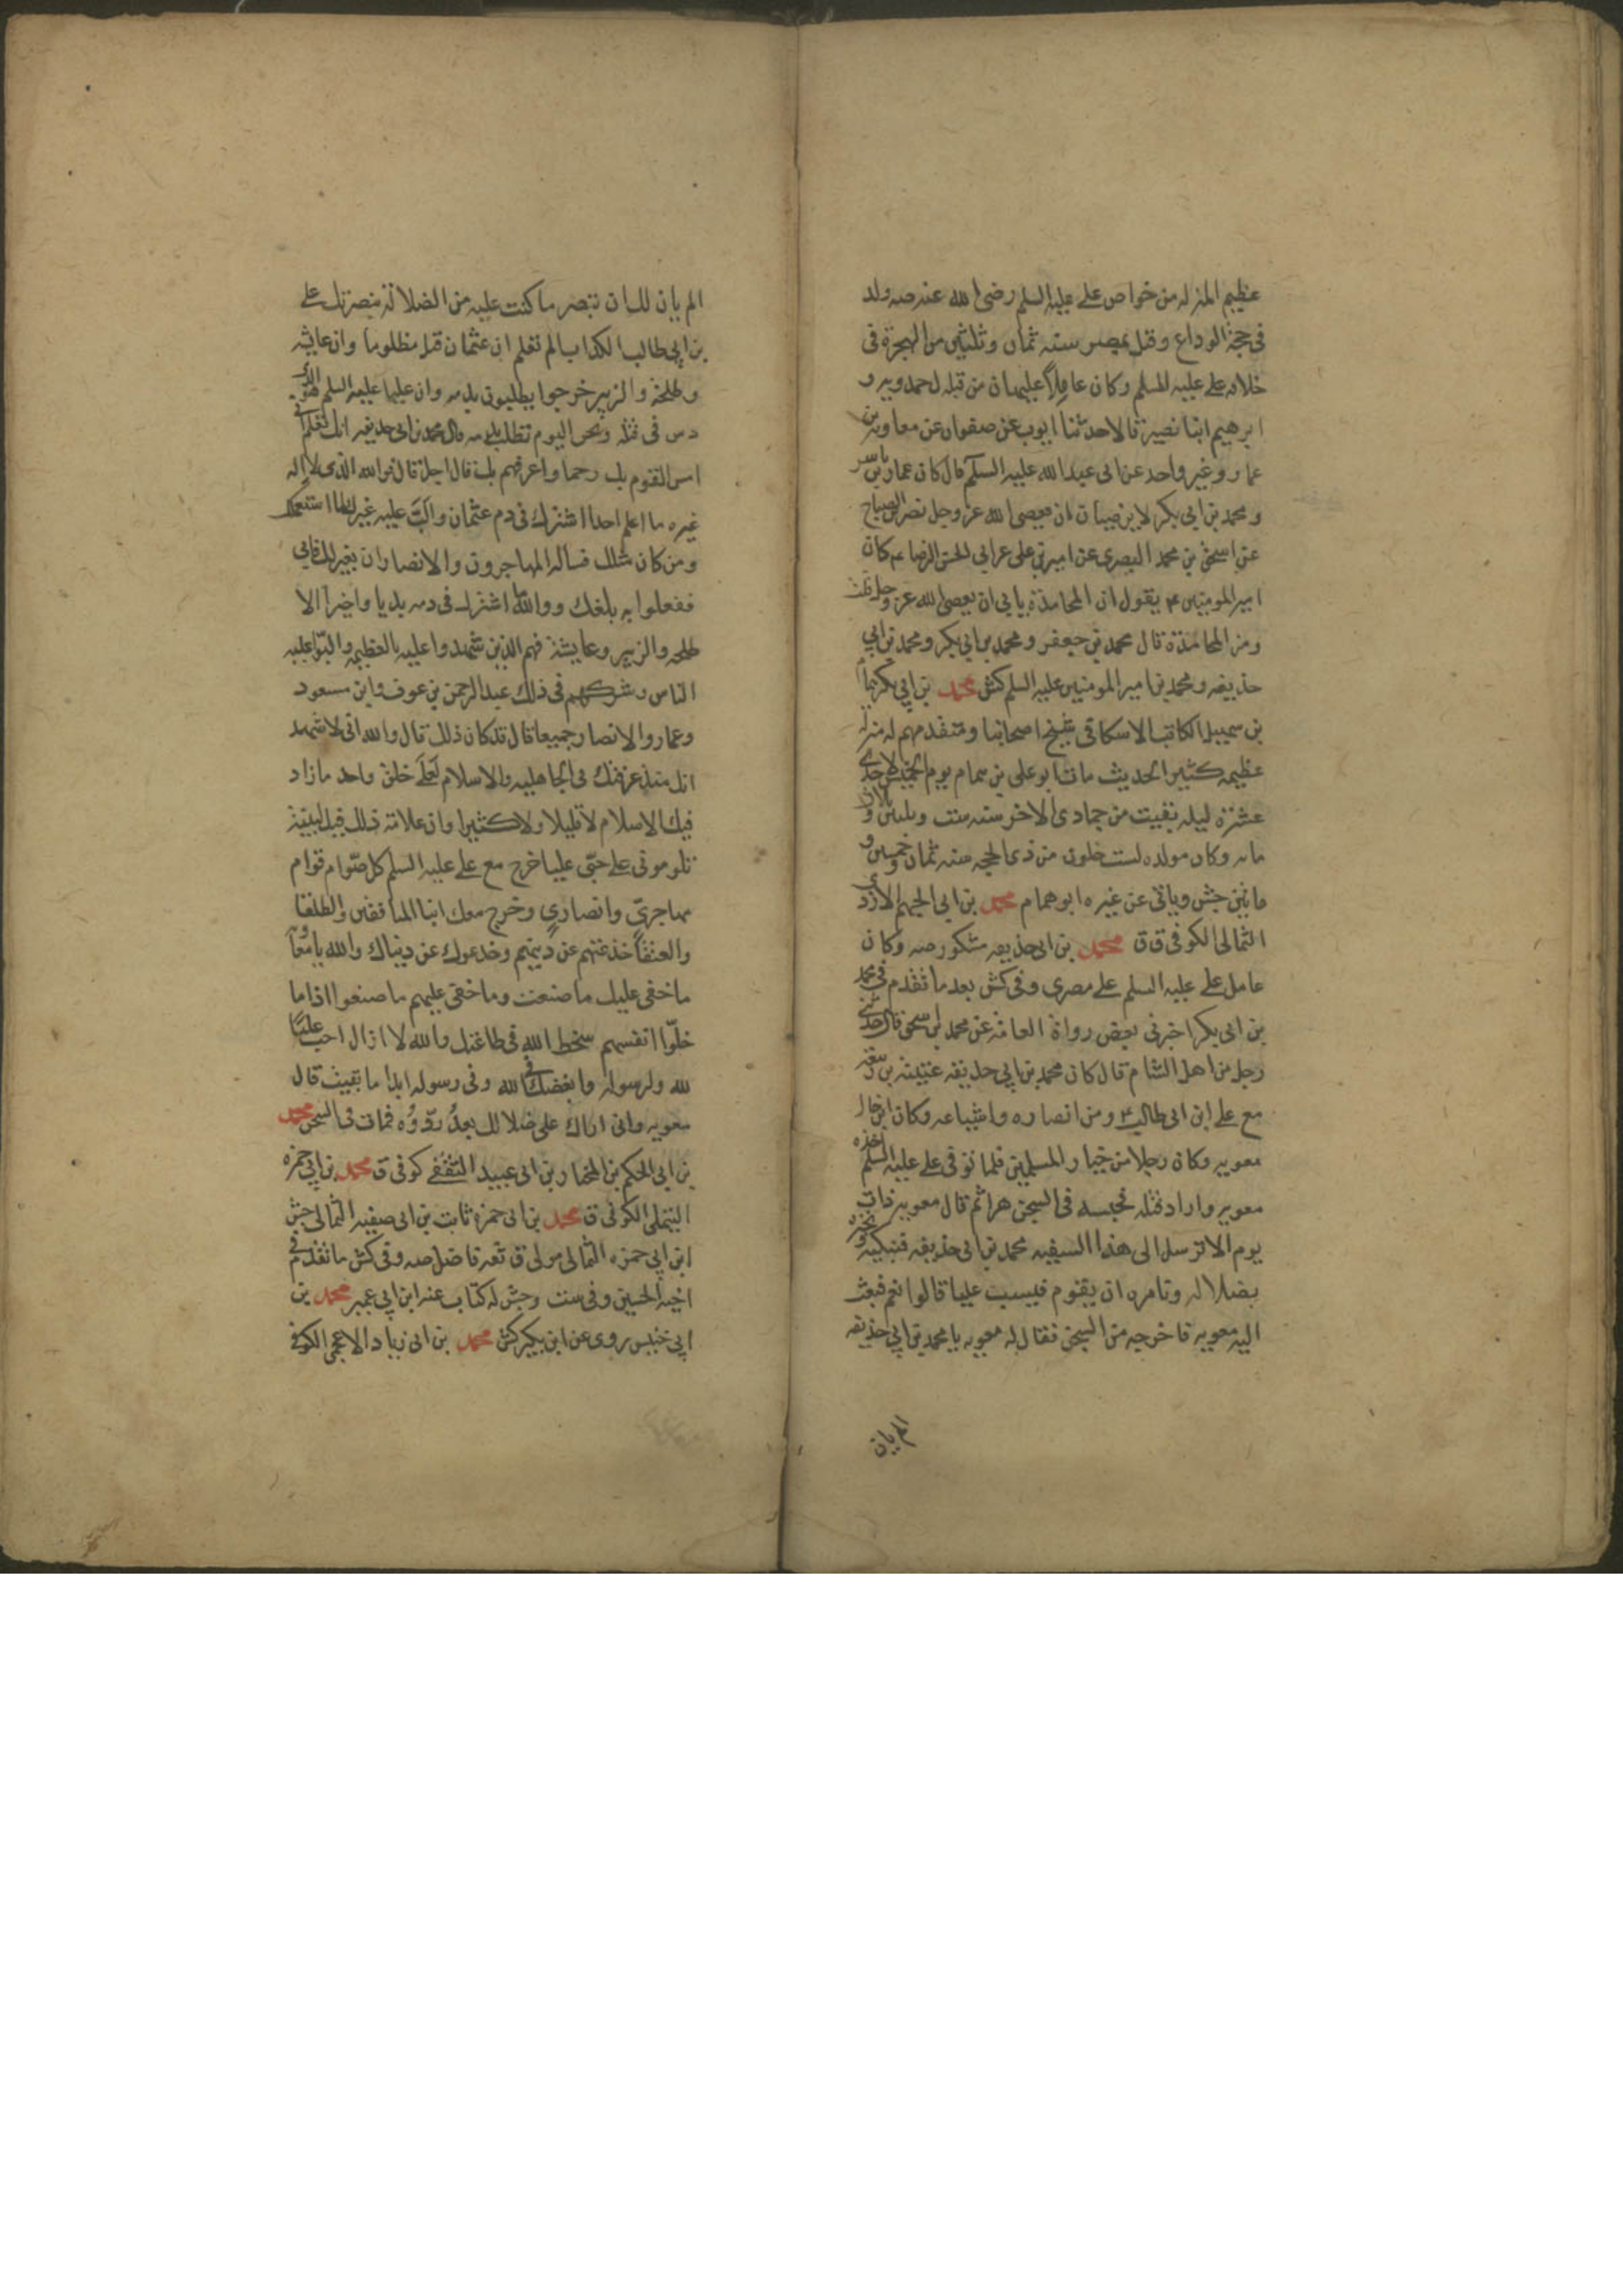 عظيم المنزله من خواص علي عليه السلم رضي الله عنه صه ولد
في حجة الوداع وقتل بمصر سنه ثمان وثلثين من الهجرة في
خلافه علي عليه السلم وكان عاملا عليها من قبله ل حمدويه و
ابرهيم ابنا نصير قالا حدثنا ايوب عن صفوان عن معاوية بن
عمار وغير واحد عن ابي عبد الله عليه السلم قال كان عمار بن ياسر
ومحمد بن ابي بكر لا يرضيان ان يعصى الله عز وجل نصر بن الصباح
عن اسحق بن محمد البصري عن امير بن علي عن ابي الحسن الرضا ع م كان
امير المومنين ع م يقول ان المحامدة يابي ان يعصى الله عز وجل قلت
ومن المحامدة قال محمد بن جعفر ومحمد بن ابي بكر ومحمد بن ابي
حذيفه ومحمد بن امير المومنين عليه السلم كش محمد بن ابي بكر همام
بن سهيل الكاتب الاسكافي شيخ اصحابنا ومتقدمهم له منزله
عظيمه كثير الحديث مات ابو علي بن همام يوم الخميس لاحدى
عشرة ليله بقيت من جمادى الاخر سنه ست وثلثين وثلاث
مائه وكان مولده لست خلون من ذي الحجه سنه ثمان وخمسين و
مائتين جش وياتي عن غيره ابو همام محمد بن ابي الجهم الازدي
الثمالي الكوفي ق ق محمد بن ابي حذيفه مشكور صه وكان
عامل علي عليه السلم على مصر ي وفي كش بعد ما تقدم في محمد
بن ابي بكر اخبرني بعض رواة العامة عن محمد بن اسحق قال حدثني
رجل من اهل الشام قال كان محمد بن ابي حذيفه عتبة بن ربيعه
مع علي ابن ابي طالب ع ومن انصاره واشياعه وكان ابن خال
معويه وكان رجلا من خيار المسلمين فلما توفي علي عليه السلم اخذه
معويه واراد قتله فحبسه في السجن دهرا ثم قال معويه ذات
يوم الا نرسل الى هذا السفيه محمد بن ابي حذيفه فنبكته ونخبره
بضلاله ونامره ان يقوم فيسب عليا قالوا نعم فبعث
اليه معويه فاخرجه من السجن فقال له معويه يا محمد بن ابي حذيفه
الم يان
الم يان لك ان تبصر ما كنت عليه من الضلالة بنصرتك علي
بن ابي طالب الكذاب الم تعلم ان عثمان قتل مظلوما وان عايشه
وطلحة والزبير خرجوا يطلبون بدمه وان عليا عليه السلم هو الذي
دس في قتله ونحن اليوم نطلب بدمه قال محمد بن ابي حذيفه انك لتعلم اني
امس القوم بك رحما واعرفهم بك قال اجل قال فوالله الذي لا اله
غيره ما اعلم احدا اشترك في دم عثمان والب عليه غيرك لما استعملك
ومن كان مثلك فساله المهاجرون والانصار ان يعزلك فابى
ففعلوا به بلغك ووالله اشترك في دمه بديا واخيرا الا
طلحه والزبير وعايشة فهم الذين شهدوا عليه بالعظيمه والبوا عليه
الناس وشركهم في ذلك عبد الرحمن بن عوف وابن مسعود
وعمار والانصار جميعا قال قد كان ذلك قال والله اني لاشهد
انك منذ عرفتك في الجاهليه والاسلام لعلى خلق واحد ما زاد
فيك الاسلام لا قليلا ولا كثيرا وان علامة ذلك فيك لبينة
تلوموني على حبي عليا خرج مع علي عليه السلم كل صوام قوام
مهاجري وانصاري وخرج معك ابنا المنافقين والطلقا
والعتقا خدعتهم عن دينهم وخدعوك عن دنياك والله يا معويه
ما خفي عليك ما صنعت وما خفي عليهم ما صنعوا اذ اما
حلوا انفسهم سخط الله في طاعتك والله لا ازال احب عليا
لله ولرسوله وابغضك في الله وفي رسوله ابدا ما بقيت قال
معويه واني اراك على ضلالك بعد ردوه فمات في السجن محمد
بن ابي الحكم بن المختار بن ابي عبيد الثقفي كوفي ق محمد بن ابي حمزه
التيملي الكوفي ق محمد بن ابي حمزة ثابت بن ابي صفيه الثمالي جش
ابن ابي حمزه الثمالي مولى ق ثقه فاضل صه وفي كش ما تقدم في
اخيه الحسين وفي ست وجش له كتاب عنه ابن ابي عمير محمد بن
ابي خنيس روى عن ابن بكير كش محمد بن ابي زياد الاعجمي الكوفي